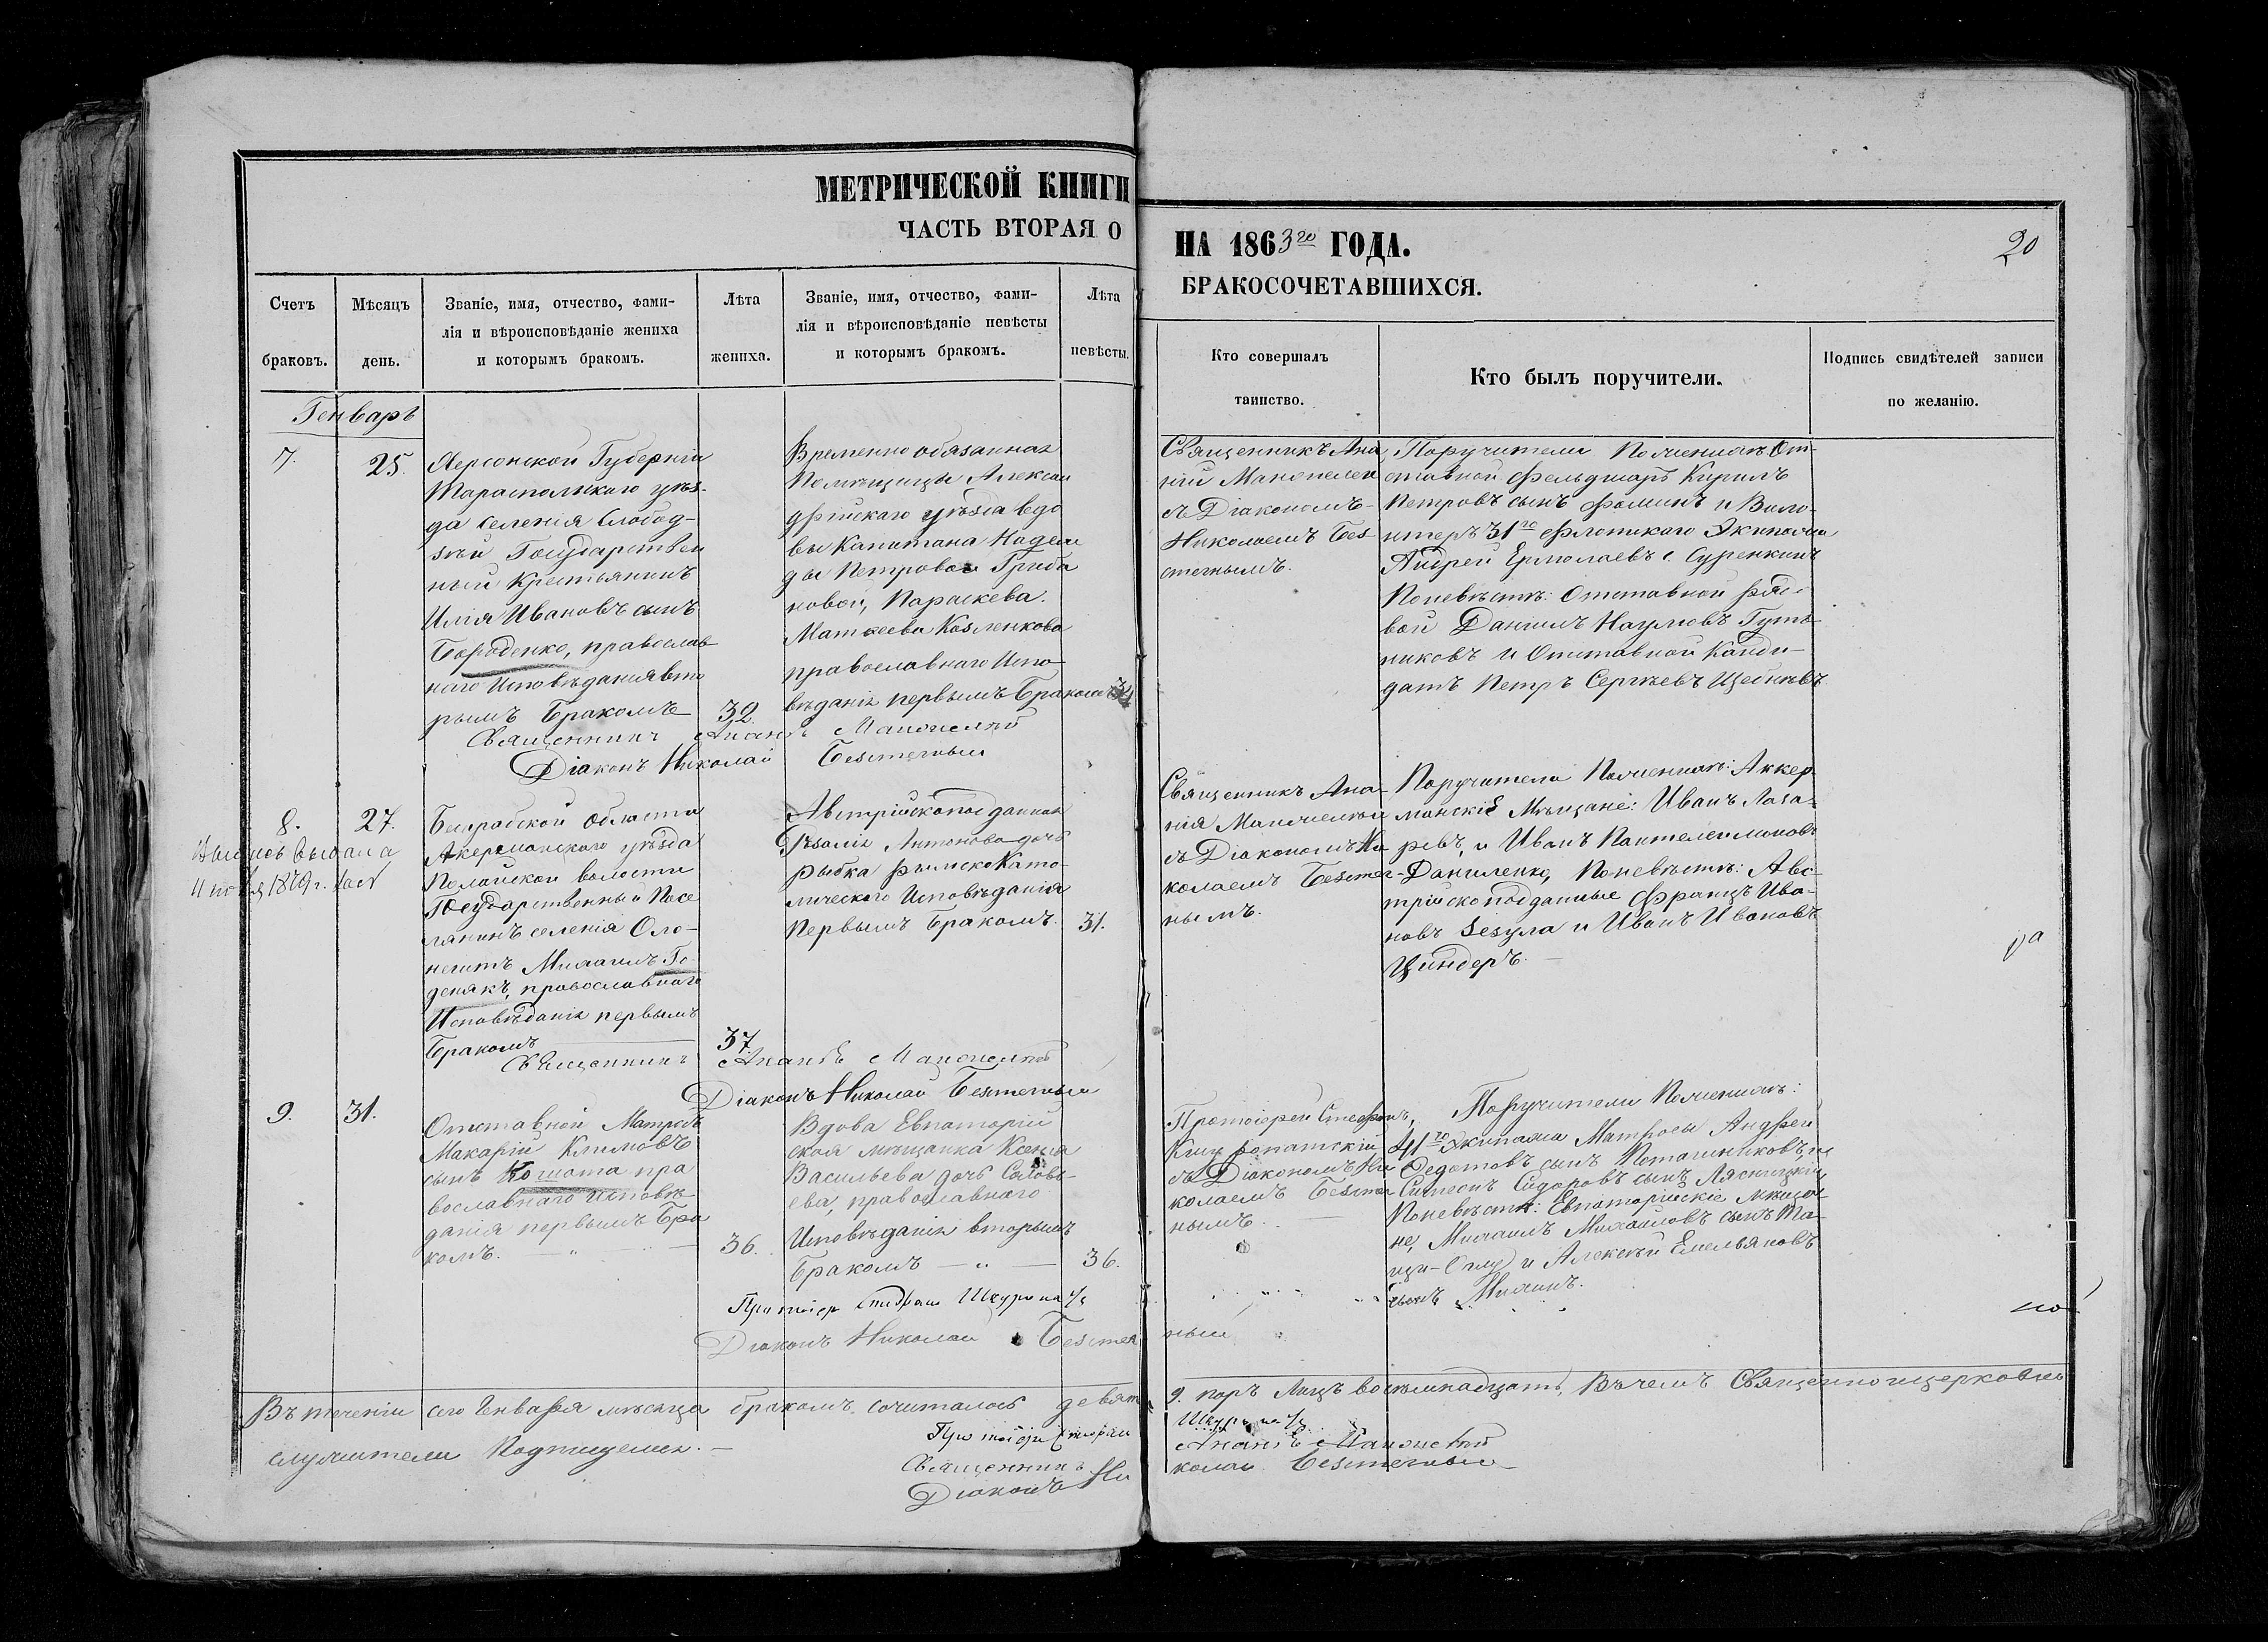 МЕТРИЧЕСКОЙ КНИГИ
ЧАСТЬ ВТОРАЯ О
НА 1863го ГОДА.
БРАКОСОЧЕТАВШИХСЯ.
20
Счетъ браковъ.
Мѣсяцъ день.
Званіе, имя, отчество, фами-
лія и вѣроисповѣданіе жениха
и которымъ бракомъ.
Лѣта жениха.
Званіе, имя, отчество, фами-
лія и вѣроисповѣданіе невѣсты
и которымъ бракомъ.
Лѣта невѣсты.
Кто совершалъ
таинство.
Кто былъ поручители.
Подпись свидѣтелей записи
по желанію.
Генварь
7.
25.
Херсонской Губерніи
Тараспольскаго уѣз-
да селенія Слобод-
зѣи Государствен
ный Крестьянинъ
Илія Ивановъ сынъ
Бороденко, православ
наго Исповѣданія вто
рымъ Бракомъ
32.
Временнообязанная
Помѣщицы Алексан
дрійскаго уѣзда вдо
вы Капитана Надеж
ды Петровой Гриба
новой, Параскева
Матѳеева Козленкова
православнаго Испо-
вѣданія первымъ Бракомъ
Священникъ Ана
ній
съ Діакономъ
Николаемъ Без
Поручители По женихѣ От-
ставной Фельдшаръ Кирилъ
Петровъ сынъ Фоминъ и Воло-
нтеръ 31го Флотскаго Экипажа
Андрей Ермолаевъ с. Суренкинъ
По невѣстѣ: Отставной рядо
вой Даниилъ Наумовъ
никовъ и Отставной Канди-
датъ Петръ Сергѣевъ
Священникъ
Діаконъ Николай
8.
27.
Бесарабской области
Акерманскаго уѣзда
волости
Государственный Посе
лянинъ селенія Оло-
нештъ Михаилъ Го
денякъ, православнаго
Исповѣданія первымъ
Бракомъ
37.
Австрійскоподданная
Розалія Антонова дочь
Рыбка римско Като-
лическаго Исповѣданія
Первымъ Бракомъ.
31.
Священникъ Ана-
нія
съ Діакономъ Ни
колаемъ
нымъ.
Поручители По женихѣ: Аккер-
манскіе Мѣщане: Иванъ Лаза-
ревъ, и Иванъ Пантелеимоновъ
Даниленко, По невѣстѣ: Авс-
трійскоподданные Францъ Ива-
новъ и Иванъ Ивановъ
Циндеръ.
Священникъ
Діаконъ Николай
9.
31.
Отставной Матросъ
Макарій Климовъ
сынъ Кошота пра
вославнаго исповѣ-
данія первымъ Бра
комъ.
36.
Вдова Евпаторій
ская мѣщанка Ксенія
Васильева дочь Соловь-
ева, православнаго
Исповѣданія вторымъ
Бракомъ
36.
Протоіерей Стефанъ
съ Діакономъ Ни
колаемъ
нымъ.
Поручители По женихѣ:
41го Экипажа Матросы Андрей
Ѳедотовъ сынъ
Симеонъ Сидоровъ сынъ
По невѣстѣ: Евпаторійскіе мѣща
не, Михаилъ Михаиловъ сынъ
и Алексѣй Емельяновъ
сынъ
Діаконъ Николай
ный
Въ теченіи сего Генваря мѣсяца бракомъ сочиталось девять
9. паръ Лицъ восемнадцать, Въ чемъ Священноцерковно
служители Подпишемся.
Священникъ
Діаконъ Ни
колай